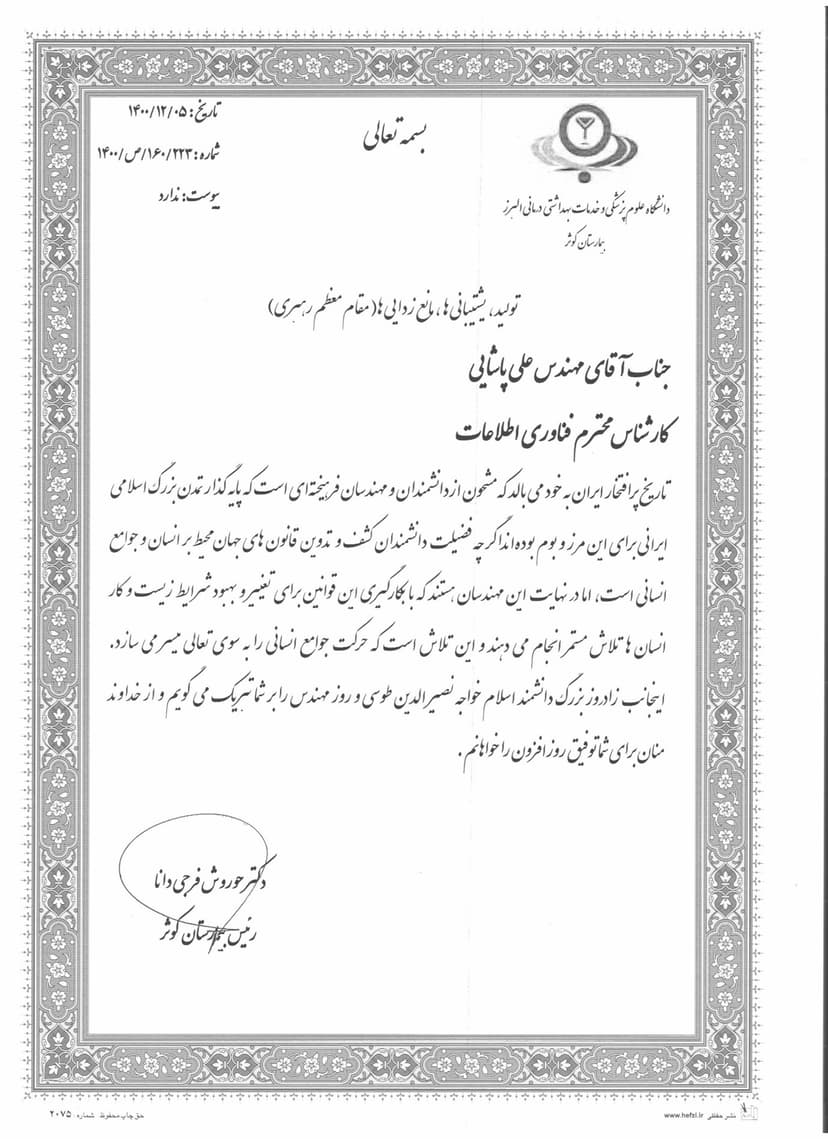 بسمه تعالی
تاریخ: ۱۴۰۰/۱۲/۰۵
شماره: ۱۶۰/۲۲۳/ص/۱۴۰۰
پیوست: ندارد
دانشگاه علوم پزشکی و خدمات بهداشتی درمانی البرز
بیمارستان کوثر
تولید، پشتیبانی ها، مانع زدایی ها (مقام معظم رهبری)
جناب آقای مهندس علی پاشایی
کارشناس محترم فناوری اطلاعات
تاریخ پر افتخار ایران به خود می بالد که مشحون از دانشمندان و مهندسان فرهیخته‌ای است که پایه گذار تمدن بزرگ اسلامی
ایرانی برای این مرز و بوم بوده اند اگر چه فضیلت دانشمندان کشف و تدوین قانون های جهان محیط بر انسان و جوامع
انسانی است، اما در نهایت این مهندسان هستند که با بکارگیری این قوانین برای تغییر و بهبود شرایط زیست و کار
انسان ها تلاش مستمر انجام می دهند و این تلاش است که حرکت جوامع انسانی را به سوی تعالی میسر می سازد.
اینجانب زادروز بزرگ دانشمند اسلام خواجه نصیرالدین طوسی و روز مهندس را بر شما تبریک می گویم و از خداوند
منان برای شما توفیق روز افزون را خواهانم.
دکتر حوروش فرجی دانا
رئیس بیمارستان کوثر
نشر حفظی www.hefzi.ir
حق چاپ محفوظ شماره: ۲۰۷۵